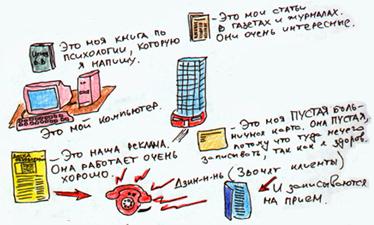 Это моя книга по
психологии, которую
я напишу.
Это мои статьи
в газетах и журналах.
Они очень интересные.
Это мой компьютер.
Это моя ПУСТАЯ боль-
ничная карта. Она пустая,
потому что туда нечего
записывать, так как я здоров.
Это наша реклама.
Она работает очень
хорошо.
Дзин-н-нь (Звонят клиенты)
И записываются
на прием.